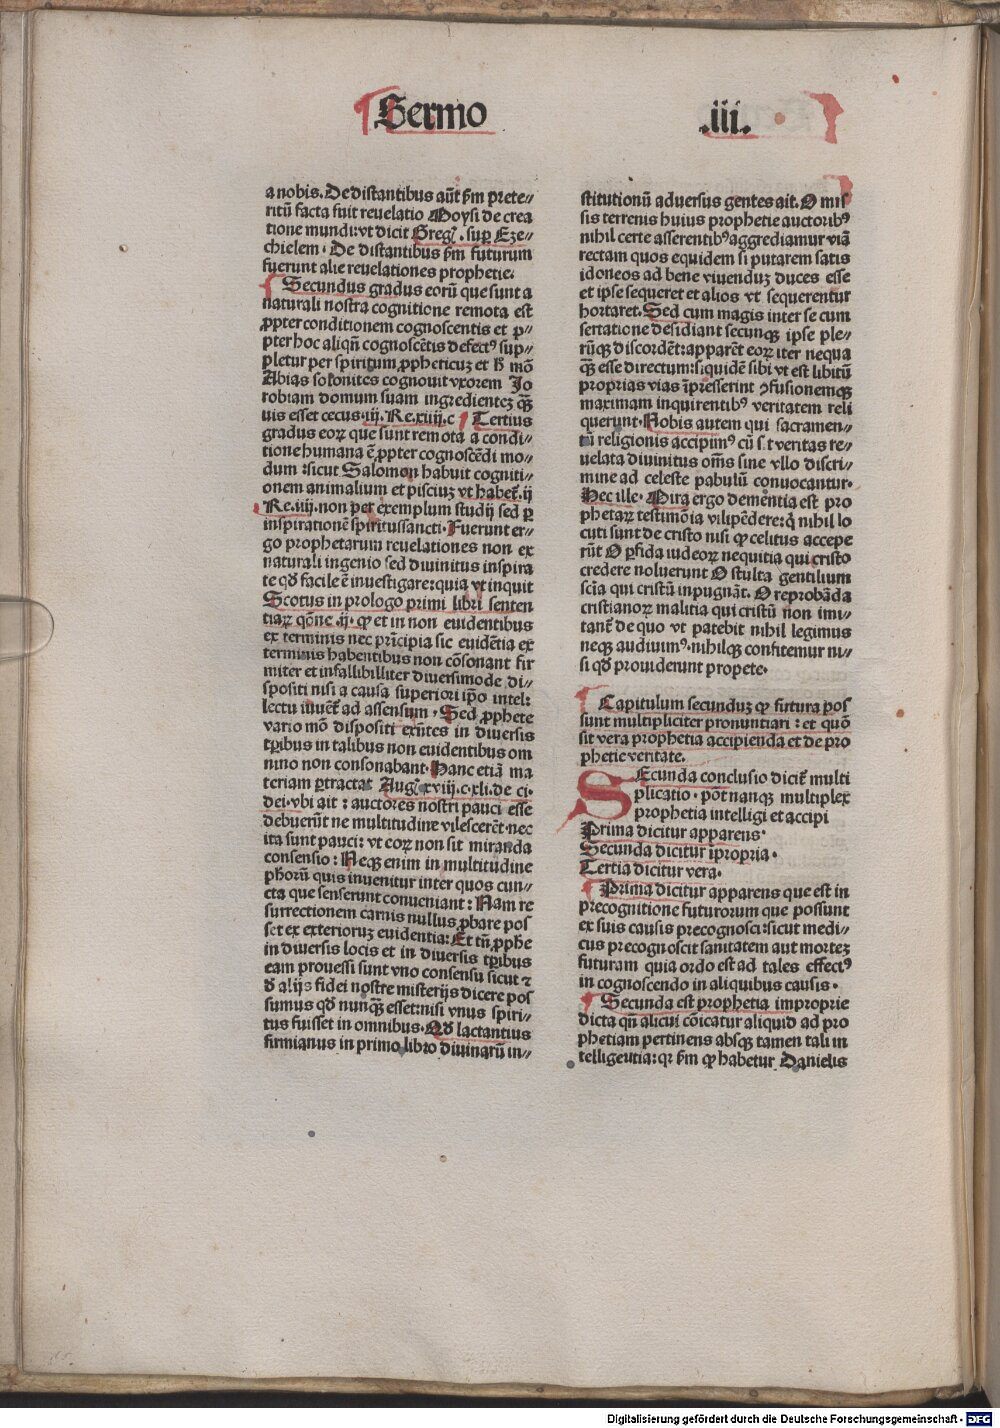 Sermo .iii.
a nobis. De distantibus aūt ẜm prete⸗
ritū facta fuit reuelatio Moysi de crea
tione mundi: vt dicit Greg. sup Eze⸗
chielem. De distantibus ẜm futurum
fuerunt alie reuelationes prophetie.
Secundus gradus eorū que sunt a
naturali nostra cognitione remota est
ꝓpter conditionem cognoscentis et ꝓ⸗
pter hoc aliqñ cognoscētis defectꝰ sup⸗
pletur per spiritum ꝓpheticuz et ħ mō
Abias solonites cognouit vxorem Io
robiam domum suam ingredientez qꝫ
uis esset cecus. iij. Re. xiiij. c Tertius
gradus eoꝝ que sunt remota a condi⸗
tione humana ē ꝓpter cognoscēdi mo⸗
dum : sicut Salomon habuit cogniti⸗
onem animalium et pisciuz vt habet. ij
Re. iiij. non per exemplum studij sed ꝑ
inspirationē spiritussancti. Fuerunt er⸗
go prophetarum reuelationes non ex
naturali ingenio sed diuinitus inspira
te qđ facile ē inuestigare: quia vt inquit
Scotus in prologo primi libri senten
tiaꝝ qōne .ij. ꝙ et in non euidentibus
ex terminis nec prīcipia sic euidētia ex
terminis habentibus non cōsonant fir
miter et infallibilliter diuersimode di⸗
spositi nisi a causa superiori ipō intel:
lectu iuuēt ad assensum. Sed ꝓphete
vario mō dispositi exñtes in diuersis
tꝑibus in talibus non euidentibus om
nino non consonabant. Hanc etiā ma
teriam ꝑtractat Aug. xviij. c. xli. de ci⸗
dei. vbi ait : auctores nostri pauci esse
debuerūt ne multitudine vilescerēt. nec
ita sunt pauci: vt eoꝝ non sit miranda
consensio : Neqꝫ enim in multitudine
phorū quis inuenitur inter quos cun⸗
cta que senserunt conueniant : Nam re
surrectionem carnis nullus ꝓbare pos
set ex exterioruz euidentia: Et tñ ꝓphe
in diuersis locis et in diuersis tꝑibus
eam prouessi sunt vno consensu sicut ⁊
đ alijs fidei nostre misterijs dicere pos
sumus qđ nunqꝫ esset: nisi vnus spiri⸗
tus fuisset in omnibus. Qđ lactantius
firmianus in primo libro diuinarū in⸗
stitutionū aduersus gentes ait. O mis
sis terrenis huius prophetie auctoribꝰ
nihil certe asserentibꝰ aggrediamur viā
rectam quos equidem si putarem satis
idoneos ad bene viuenduz duces esse
et ipse sequeret et alios vt sequerentur
hortaret. Sed cum magis inter se cum
sertatione desidiant secunqꝫ ipse ple⸗
rūqꝫ discordēt: apparēt eoꝝ iter nequa
qꝫ esse directum: siquidē sibi vt est libitū
proprias vias īpresserint ꝯfusionemqꝫ
maximam inquirentibꝰ veritatem reli
querunt. Nobis autem qui sacramen⸗
tū religionis accipimꝰ cū sit veritas re⸗
uelata diuinitus om̄s sine vllo discri⸗
mine ad celeste pabulū conuocantur.
Hec ille. Mira ergo dementia est pro
phetaꝝ testimōia vilipēdere: q̇ nihil lo
cuti sunt de cristo nisi ꝙ celitus accepe
rūt O ꝑfida iudeoꝝ nequitia qui cristo
credere noluerunt O stulta gentilium
scīa qui cristū inpugnāt. O reprobāda
cristianoꝝ malitia qui cristū non imi⸗
tant̄ de quo vt patebit nihil legimus
neqꝫ audiuimꝰ. nihilqꝫ confitemur ni⸗
si qđ prouiderunt propete.
Capitulum secunduz ꝙ futura pos
sunt multipliciter pronuntiari : et quō
sit vera prophetia accipienda et de pro
phetie veritate.
SEcunda conclusio dicit̄ multi
plicatio. pōt nanqꝫ multiplex
prophetia intelligi et accipi
Prima dicitur apparens.
Secunda dicitur īpropria.
Tertia dicitur vera.
Prima dicitur apparens que est in
precognitione futurorum que possunt
ex suis causis precognosci: sicut medi⸗
cus precognoscit sanitatem aut mortez
futuram quia ordo est ad tales effectꝰ
in cognoscendo in aliquibus causis.
Secunda est prophetia improprie
dicta qñ alicui cōicatur aliquid ad pro
phetiam pertinens absqꝫ tamen tali in
telligentia: qꝛ ẜm ꝙ habetur Danielis
Digitalisierung gefördert durch die Deutsche Forschungsgemeinschaft - DFG